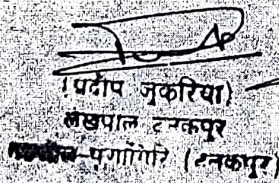 (प्रदीप जुकरिया)
लेखपाल टनकपुर
(टनकपुर)